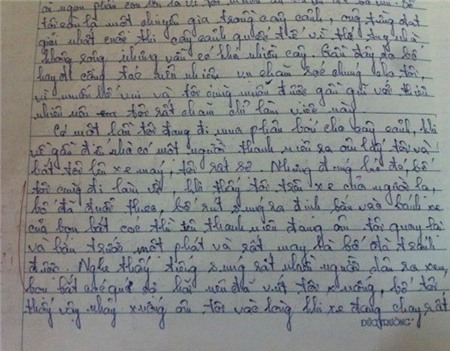 tôi còn là một chuyên gia trong cây cảnh, ông từng đạt
giải nhất cuộc thi cây cảnh quốc tế vì thế tuy nhà
không rộng nhưng vẫn có khá nhiều cây. Gần đây do bố
hay đi công tác nên nhiều vụ chăm sóc chúng cho tôi,
vì muốn bố vui và tôi cũng muốn được gần gũi với thiên
nhiên nên tôi rất chăm chỉ làm việc này.
Có một lần tôi đang đi mua phân bón cho cây cảnh, khi
về gần đến nhà có một người thanh niên ra ôm lấy tôi và
bắt tôi lên xe máy, tôi rất sợ. Nhưng đúng lúc đó, bố
tôi cũng đi làm về, khi thấy tôi trên xe của người lạ,
bố đã đuổi theo, bố rút súng ra định bắn vào bánh xe
của bọn bắt cóc thì tên thanh niên đang ôm tôi quay lại
và bắn trước một phát và rất may là bố đã tránh
được. Nghe thấy tiếng súng rất nhiều người dân ra xem,
bọn bắt cóc quá sợ hãi nên đã vứt tôi xuống, bố tôi
thấy vậy nhảy xuống ôm tôi vào lòng khi xe đang chạy rất